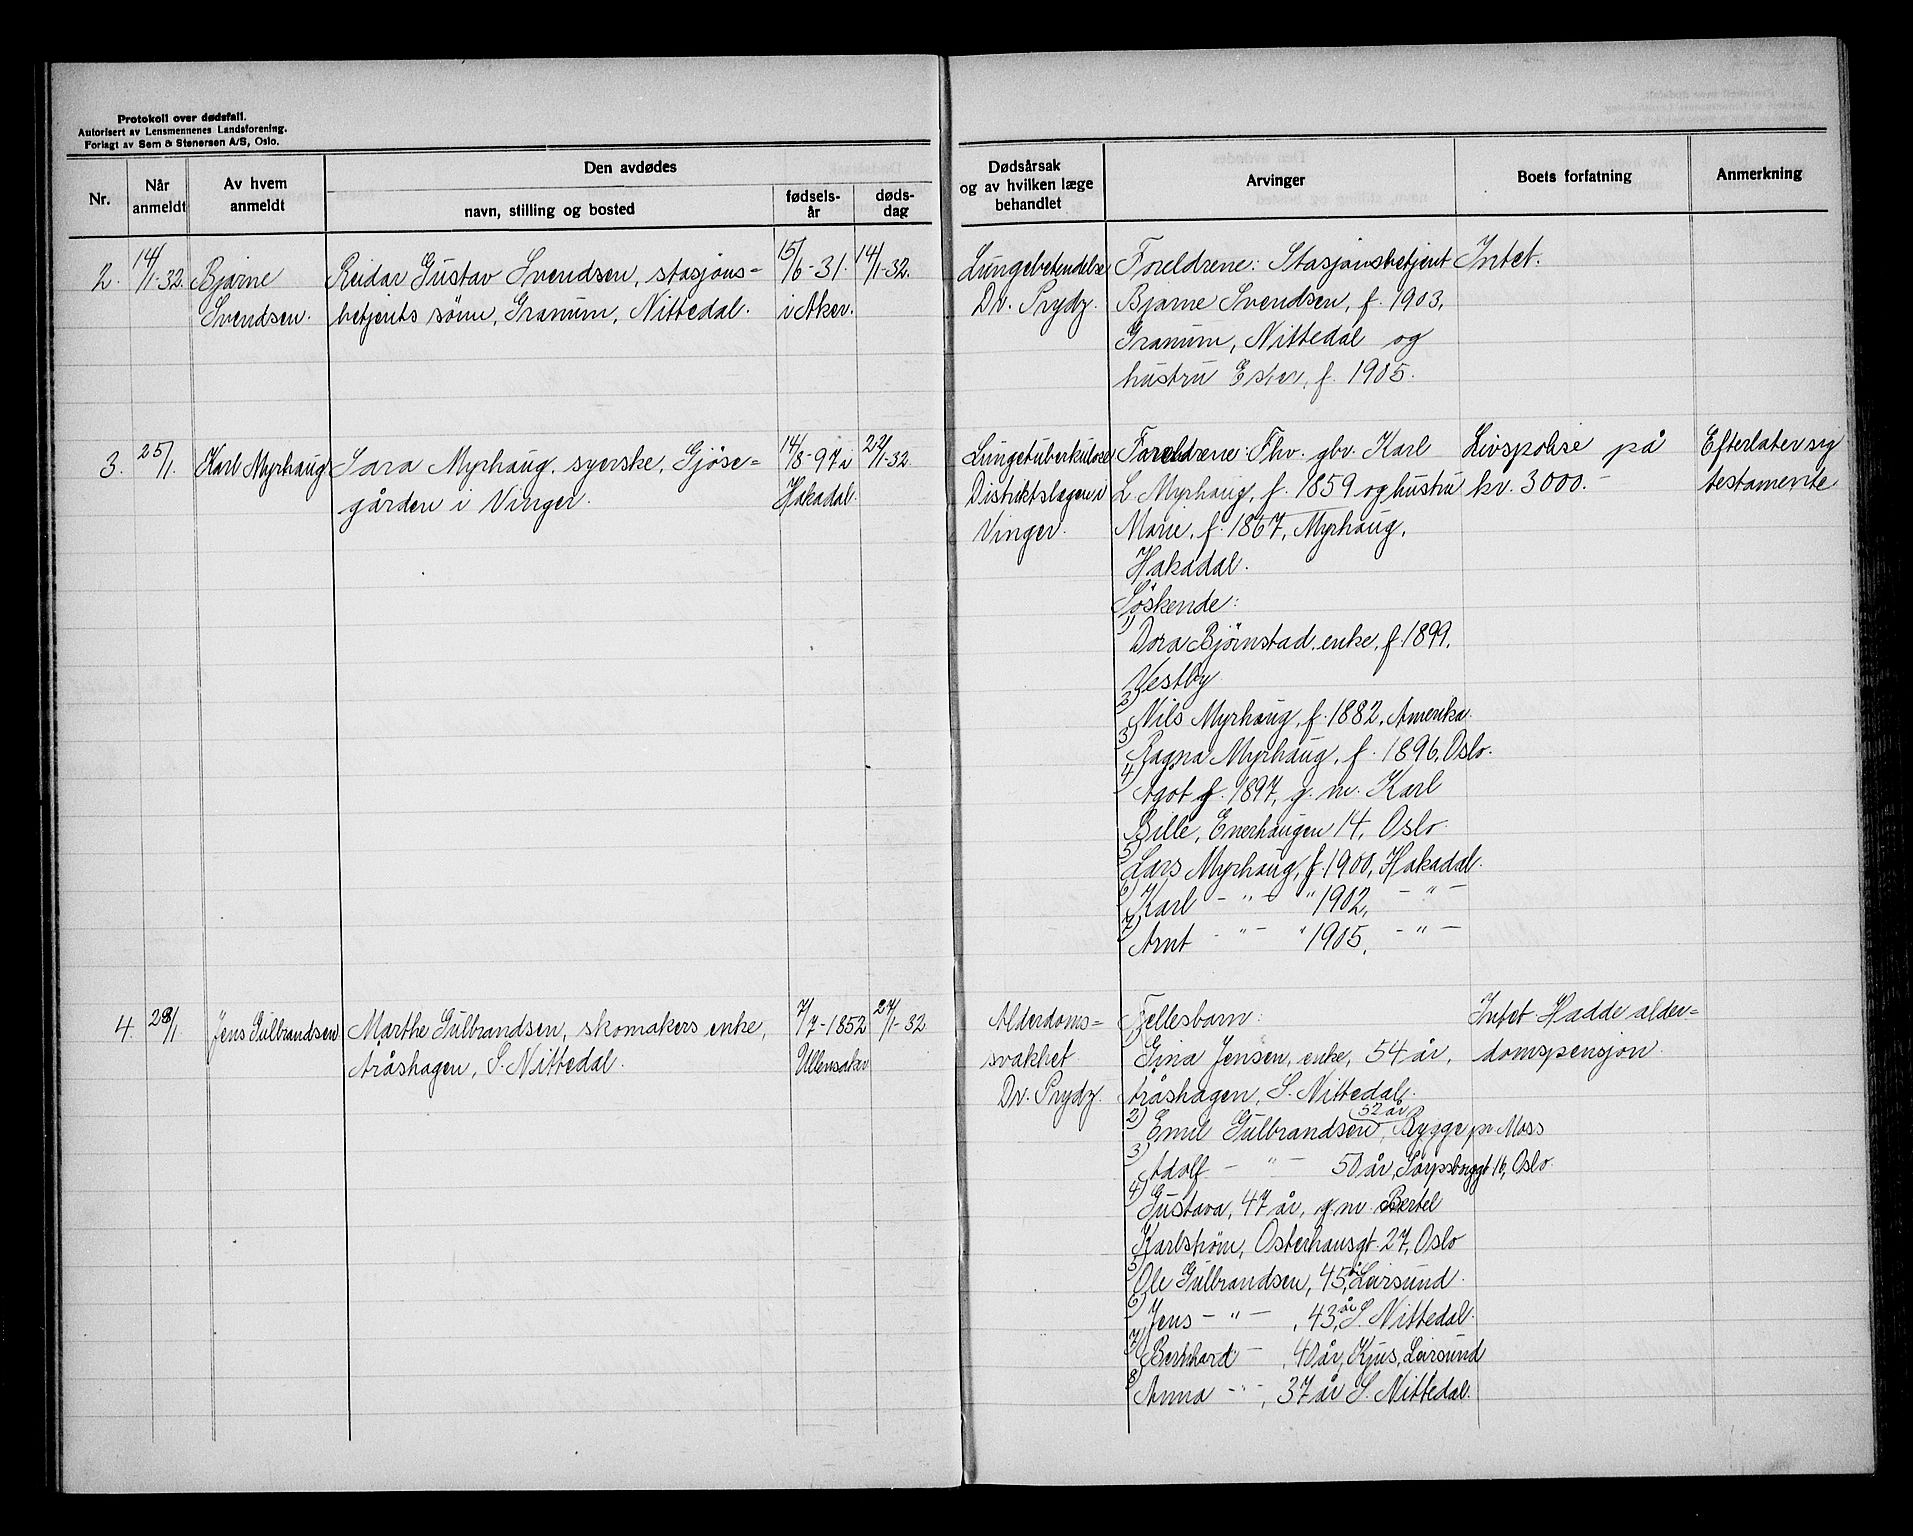 Protokoll over dødsfall.
Autorisert av Lensmennenes Landsforening.
Forlagt av Sem & Stenersen A/S, Oslo.
Nr.
Når anmeldt
Av hvem anmeldt
Den avdødes
navn, stilling og bosted
fødsels-år
døds-dag
Dødsårsak og av hvilken læge behandlet
Arvinger
Boets forfatning
Anmerkning
2. 14/1-32. Bjarne
Svendsen.
Reidar Gustav Svendsen, stasjons-
betjents sønn, Granum, Nittedal.
15/6-31.
i Aker.
14/1-32.
Lungebetendelse
Dr. Prydz.
Foreldrene: Stasjonsbetjent
Bjarne Svendsen, f. 1903,
Granum, Nittedal og
hustru Ester, f. 1905.
Intet.
3. 25/1. Karl Myrhaug
Sara Myrhaug, syerske, Gjøse-
gården i Vinger.
14/8-97 i
Hakadal.
22/1-32.
Lungetuberkulose
Distriktslægen i
Vinger.
Foreldrene: Fhv. gbr. Karl
L. Myrhaug, f. 1859 og hustru
Marie, f. 1867, Myrhaug,
Hakadal.
Søskende:
1) Dora Bjørnstad, enke, f. 1899,
Vestby
2) Nils Myrhaug, f. 1882, Amerika.
3) Ragna Myrhaug, f. 1896, Oslo.
4) Agot f. 1897, g. m. Karl
Bille, Enerhaugen 14, Oslo.
5) Lars Myrhaug, f. 1900, Hakadal.
6) Karl - " - " 1902, - " -
7) Arnt - " - " 1905, - " -
Livspolise på
kr. 3000.-
Efterlater sig
testamente
4. 28/1 Jens Gulbrandsen
Marthe Gulbrandsen, skomakers enke,
Åråshagen, S. Nittedal.
7/7-1852
Ullensaker
27/1-32
Alderdoms-
svakhet
Dr. Prydz.
Fellesbarn:
1) Gina Jensen, enke, 54 år,
Åråshagen, S. Nittedal.
2) Emil Gulbrandsen, 52 år, Rygge pr. Moss
3) Adolf - " - 50 år, Sarpsborggt 16, Oslo.
4) Gustava, 47 år, g. m. Bertel
Karlstrøm, Osterhausgt. 27, Oslo
5) Ole Gulbrandsen, 45 år, Leirsund.
6) Jens - " - , 43 år, S. Nittedal.
7) Bernhard - , 40 år, Kjus, Leirsund
8) Anna - " - , 37 år S. Nittedal.
Intet Hadde alder-
domspensjon.